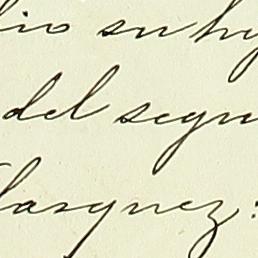 lio su hy
del segun
Vasquez: